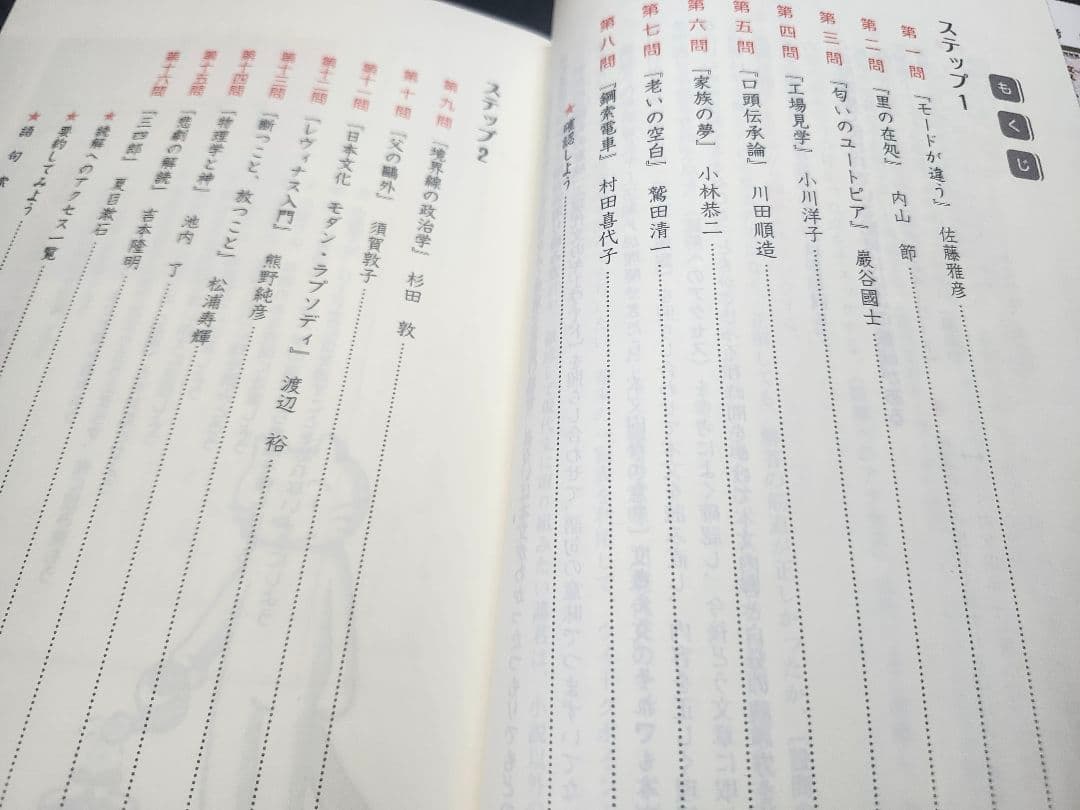 もくじ
ステップ1
第一問 『モードが違う』 佐藤雅彦
第二問 『里の在処』 内山 節
第三問 『匂いのユートピア』 巖谷國士
第四問 『工場見学』 小川洋子
第五問 『口頭伝承論』 川田順造
第六問 『家族の夢』 小林恭二
第七問 『老いの空白』 鷲田清一
第八問 『鋼索電車』 村田喜代子
★確認しよう
ステップ2
第九問 『境界線の政治学』 杉田 敦
第十問 『父の鷗外』 須賀敦子
第十一問 『日本文化 モダン・ラプソディ』 渡辺 裕
第十二問 『レヴィナス入門』 熊野純彦
第十三問 『断つこと、放つこと』 松浦寿輝
第十四問 『物理学と神』 池内 了
第十五問 『悲劇の解読』 吉本隆明
第十六問 『三四郎』 夏目漱石
★読解へのアクセス一覧
★要約してみよう
★語句